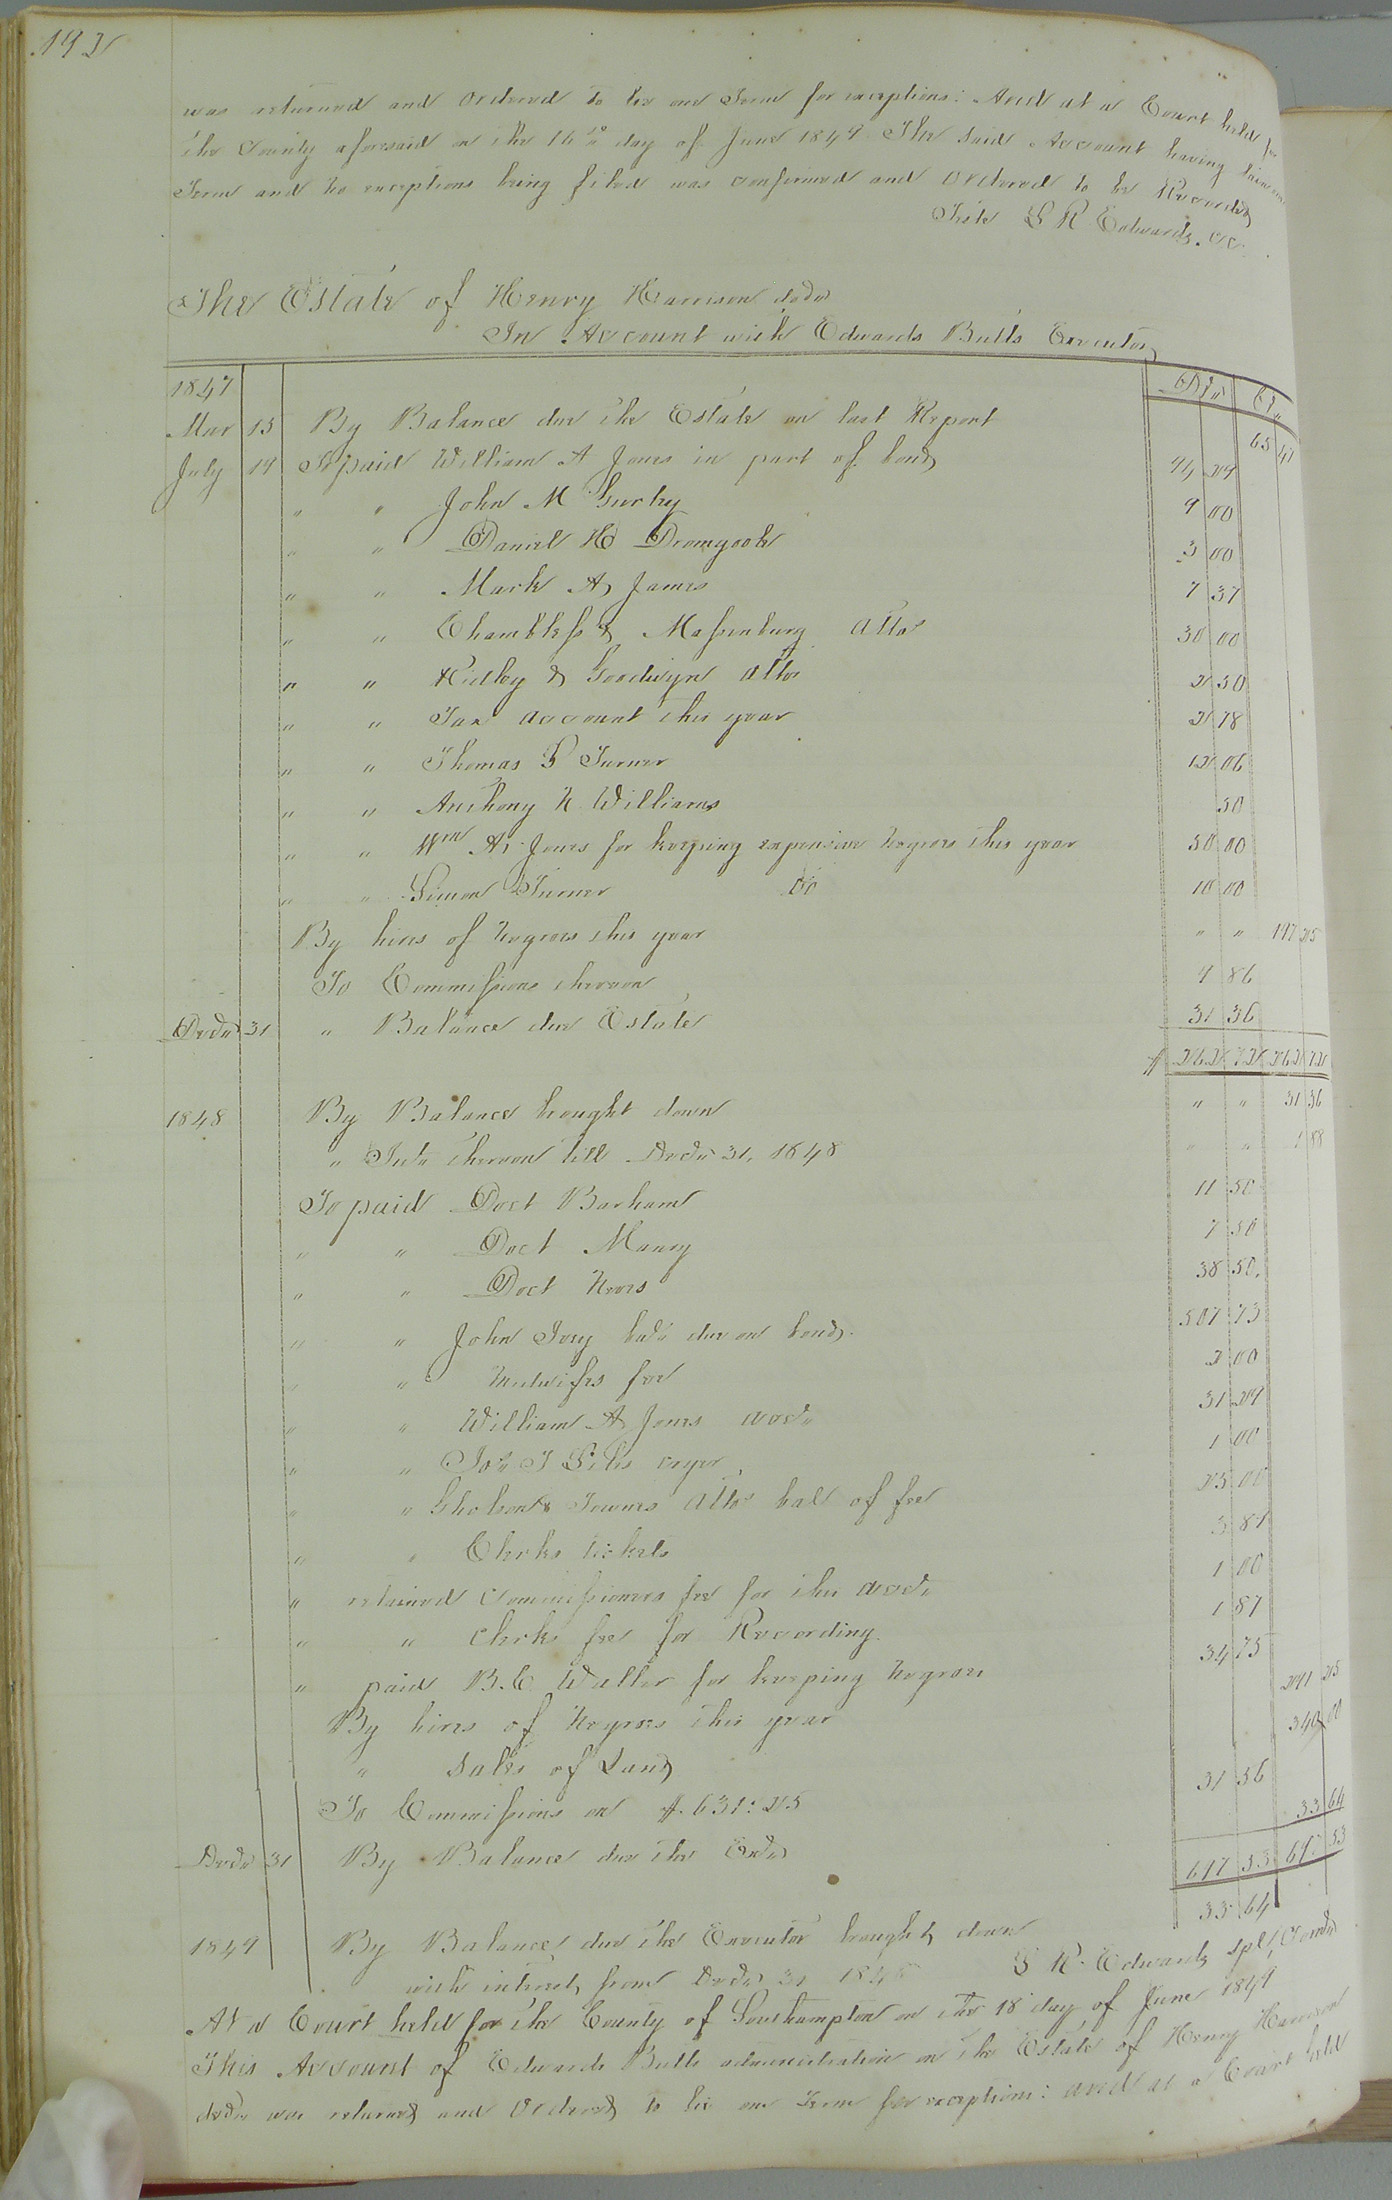 192
was returned and ordered to lie one Term for exceptions: And at a Court held for
the County aforesaid on the 16th day of June 1849 The said Account having lain one
Term and no exceptions being filed was confirmed and ordered to be Recorded
Teste L R Edwards. CC
The Estate of Henry Harrison decd
In Account with Edwards Butts Executor
Dr. Cr.
1847
Mar 15 By Balance due the Estate on last Report 65 47
July 19 To paid William A Jones in part of bond 94 29
" " John M Gurley 9 00
" " Daniel H Dromgoole 3 00
" " Mark A, James 7 37
" " Chambless & Massenburg Attos 30 00
" " Ridley & Goodwyn Attos 2 50
" " Tax account this year 2 78
" " Thomas L Turner 12 06
" " Anthony N Williams 50
" " Wm A, Jones for keeping expensive negroes this year 50 00
" " Simon Turner Do 10 00
By hires of negroes this year " " 197 25
To Commissions thereon 9 86
Decr 31 " Balance due Estate 31 36
$ 262 72 262 72
1848 By Balance brought down " " 31 36
" Int. thereon till Decr 31, 1848 " " 1 88
To paid Doct Barham 11 50
" " Doct Maury 7 50
" " Doct 38 50.
" " John Ivey bal. due on bond. 507 73
" " Midwifes fee 2 00
" " William A Jones acct. 31 29
" " J cryer 1 00
" " Gholson & Towns Attos bal of fee 25 00
" " Clerks tickets 3 87
" retained Commissioners fee for this acct. 1 00
" " Clerks fee for Recording. 1 87
" paid B. C Waller for keeping negroes 34 75
By hires of negroes this year 291 25
" Sales of Land 340 00
To Commissions on $. 631: 25 31 56
Decr 31 By Balance due the Exr 33 64
697 53 697 53
1849 By Balance, due the Executor brought down 33 64
with interest from Decr 31 1848 L R. Edwards Spl, Comr
At a Court held for the County of Southampton on the 18 day of June 1849
This Account of Edwards Butts administration on the Estate of Henry Harrison
decd was returned and Ordered to lie one Term for exceptions: and at a Court held